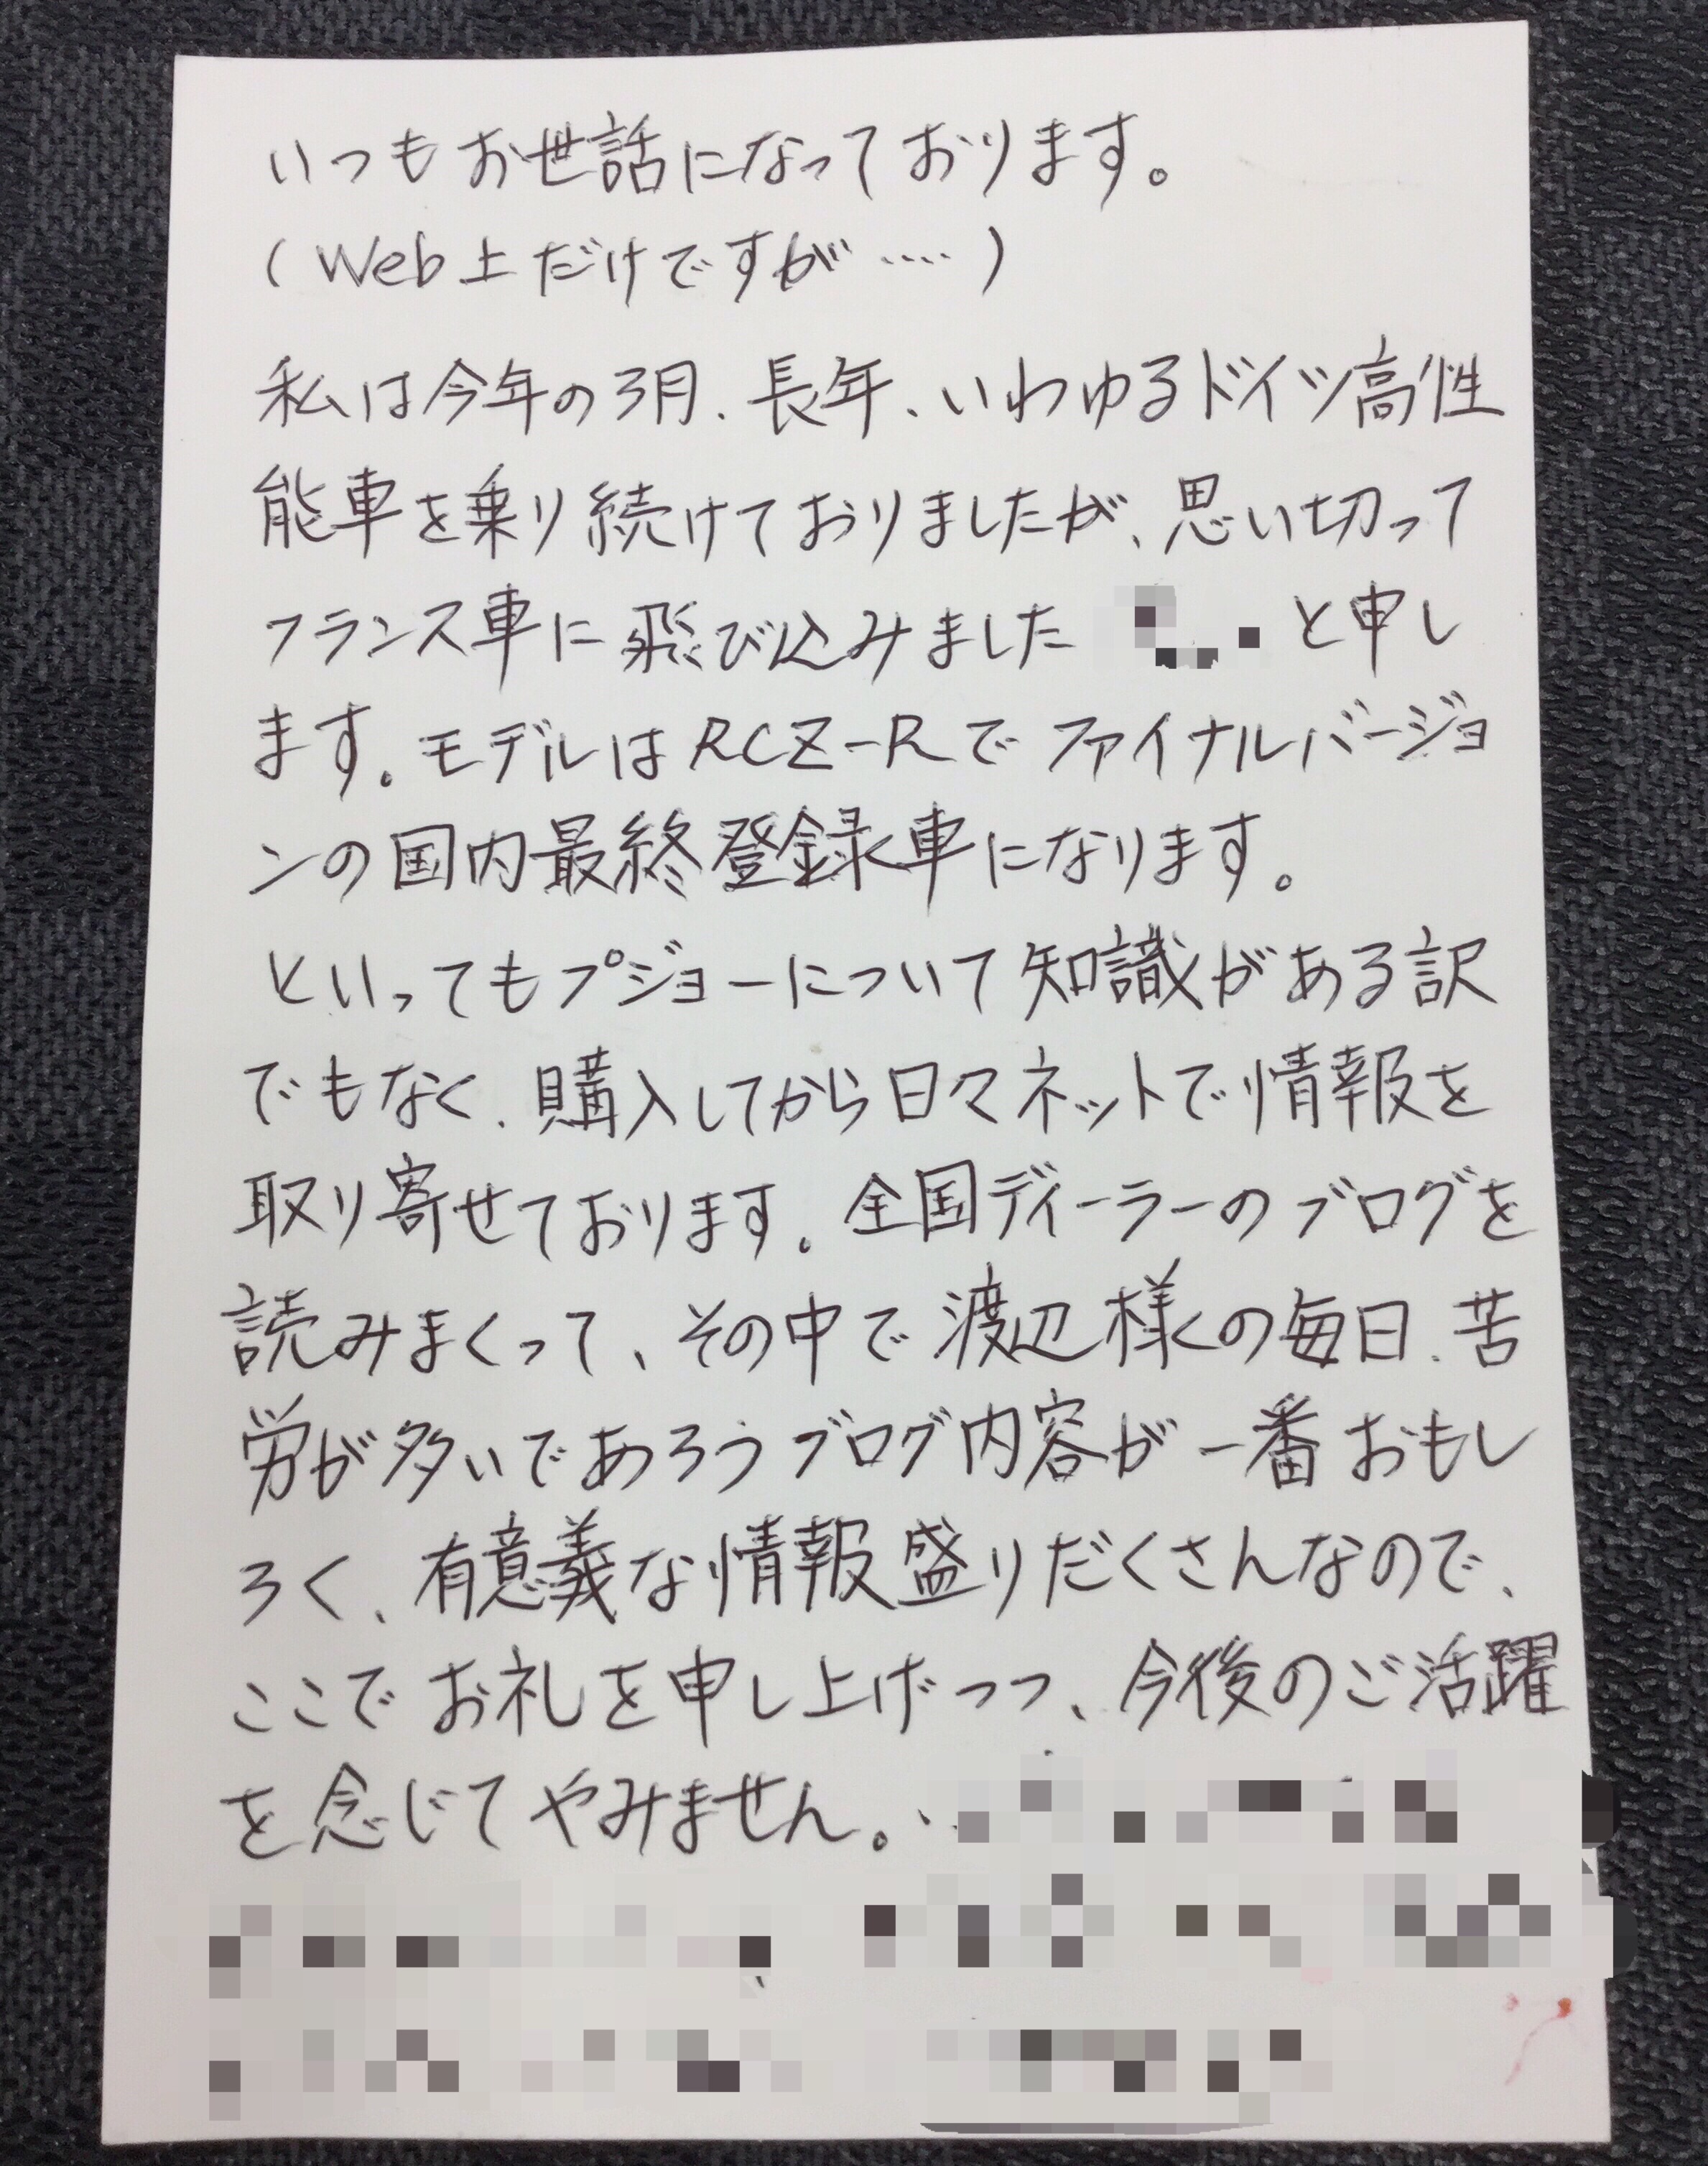 いつもお世話になっております。
(Web上だけですが‥‥)
私は今年の3月、長年、いわゆるドイツ高性
能車を乗り続けておりましたが、思い切って
フランス車に飛び込みました と申し
ます。モデルはRCZ-Rでファイナルバージョ
ンの国内最終登録車になります。
といってもプジョーについて知識がある訳
でもなく、購入してから日々ネットで情報を
取り寄せております。全国ディーラーのブログを
読みまくって、その中で渡辺様の毎日、苦
労が多いであろうブログ内容が一番おもし
ろく、有意義な情報盛りだくさんなので、
ここでお礼を申し上げつつ、今後のご活躍
を念じてやみません。